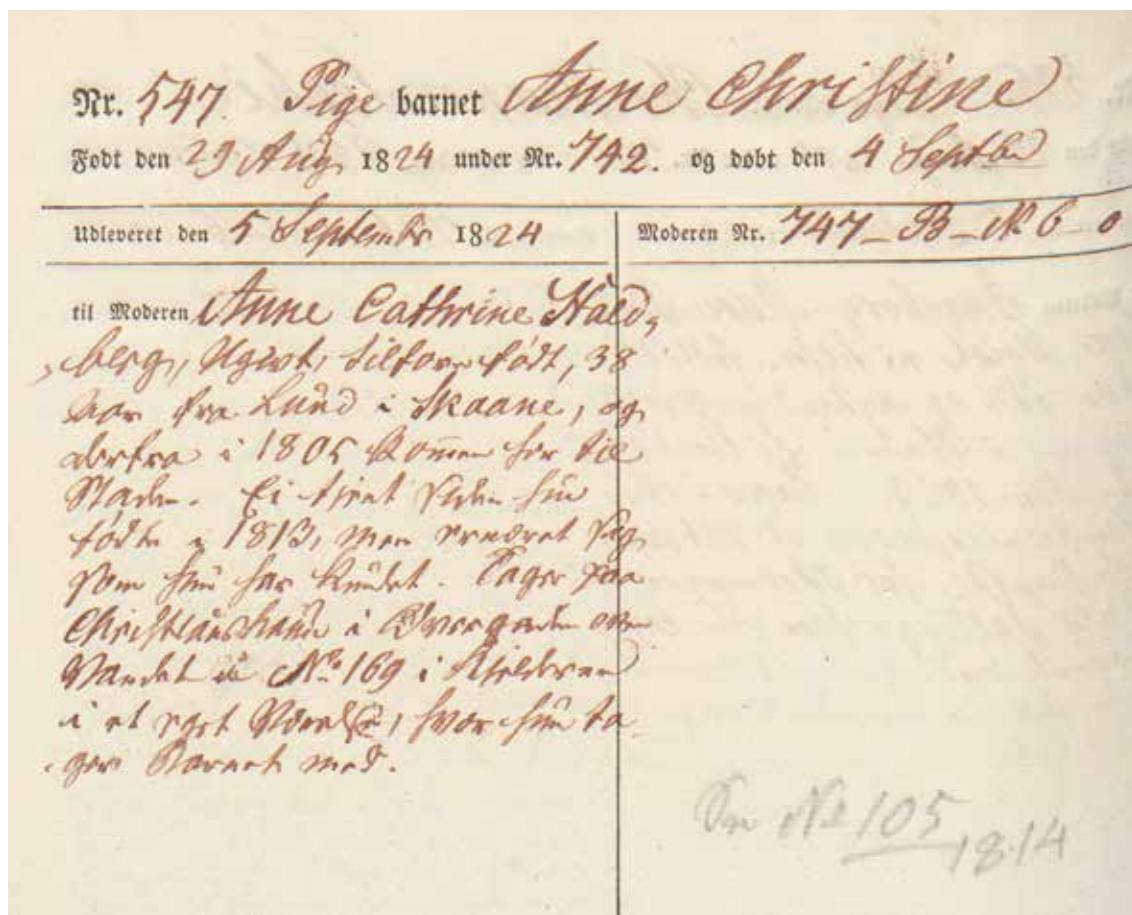 Nr. 547. Pige barnet Anne Christine
Født den 29 Aug. 1824 under Nr. 742. og døbt den 4 Septbr
Udleveret den 5 Septembr 1824
Moderen Nr. 747 - B - № 6 - 0
til Moderen Anne Cathrine Hald,
berg, Ugivt, tilforn født, 38
Aar fra Lund i Skaane, og
derfra i 1805 kommen her til
Staden. Ei tient siden hun
fødte i 1813, men ernæret sig
som hun har kundet. Tager paa
Christianshavn i Overgaden oven
Vandet in № 169 i Kielderen
i et eget Værelse, hvor hun ta-
ger Barnet med.
№ 105
1814